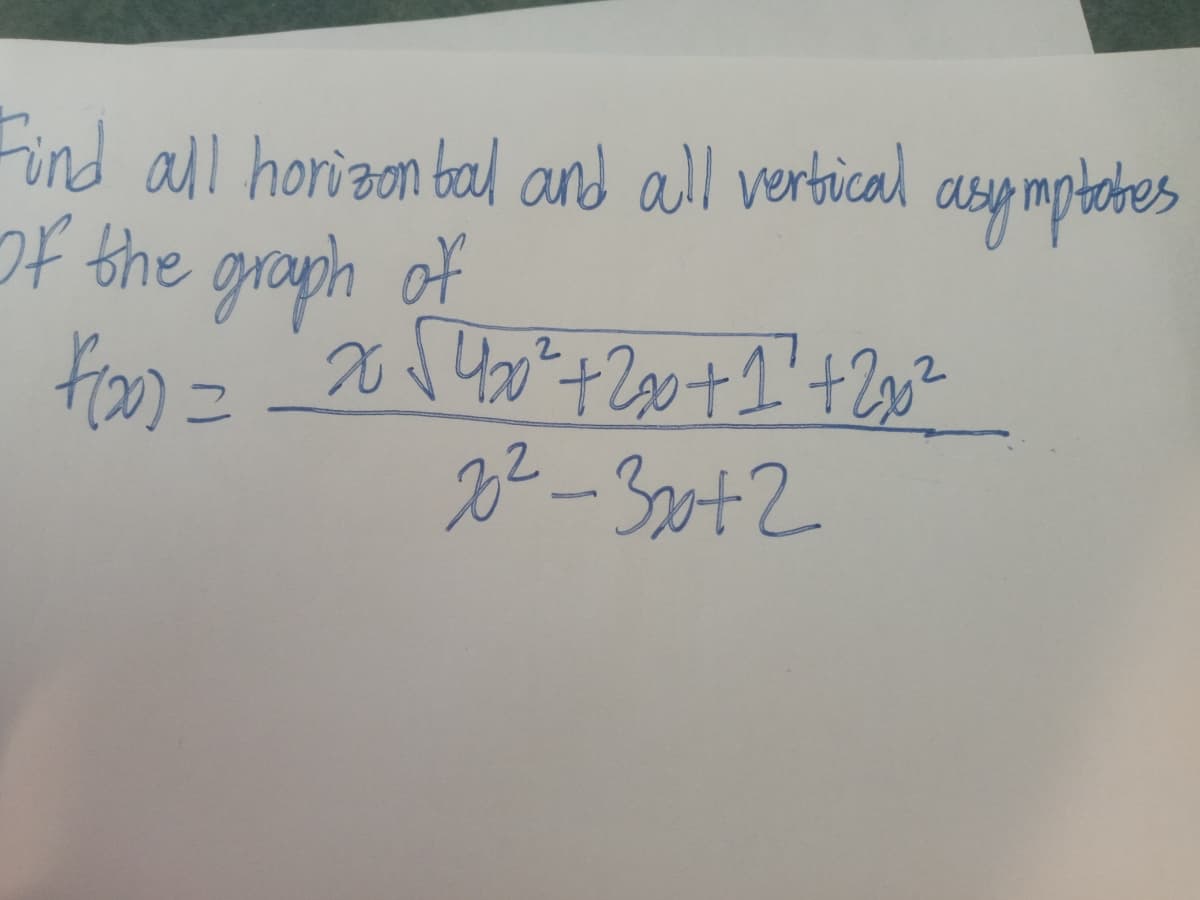 Find all horizontal and all vertical asymptotes
of the graph of
f(x) = x √4x²+2x+1 + 2x²
x² - 3x+2